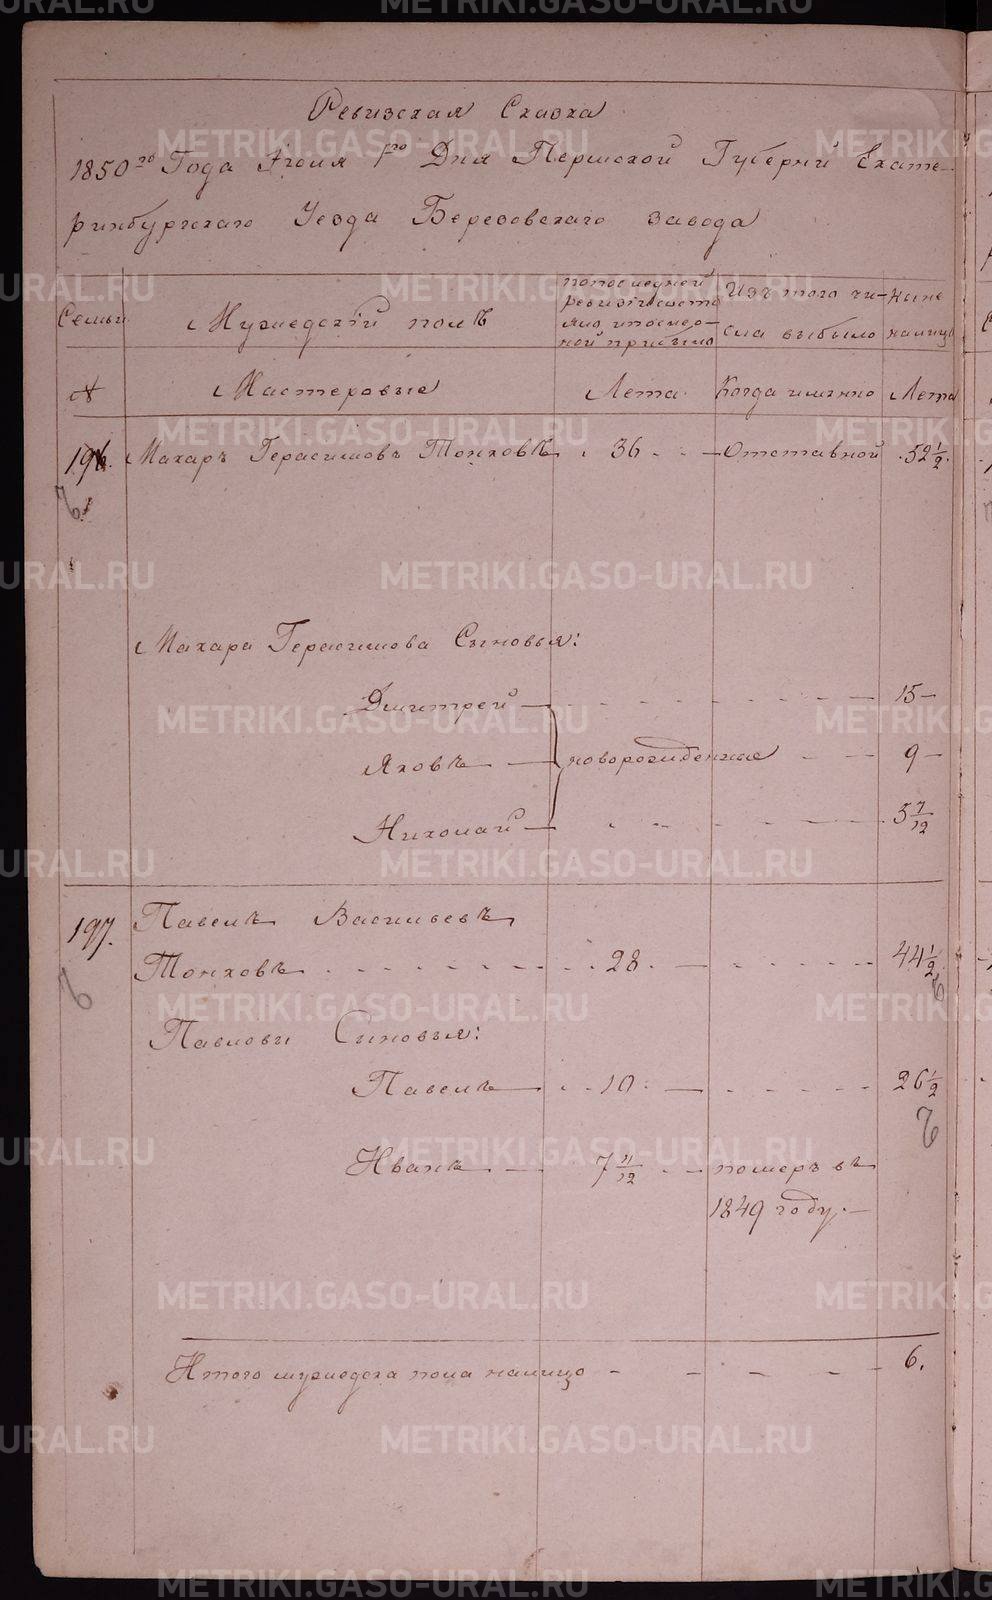 Ревизская Сказка
1850го Года Июля 1го Дня Пермской Губерни Екате-
ринбургскаго Уезда Березовскаго завода
Семьи
Мужеский полъ
попоследней
ревизiисосто
яло, ипослер-
ной прибыло
Изъ того чи-
сла выбыло
Ныне
налицо
№
Мастеровые
Лета
Когда имянно
Лета
196. Макаръ Герасимовъ Тонковъ 36 Отставной 52 1/2.
Макара Герасимова Сыновья:
Дмитрей 15
Яковъ новорожденные 9
Николай 5 7/12
197. Павелъ Васильевъ
Тонковъ 28 44 1/2
Павловы Сыновья:
Павелъ 10 26 1/2
Иванъ 7 11/12 померъ въ
1849 году.
Итого мужеска пола налицо 6.
METRIKI.GASO-URAL.RU